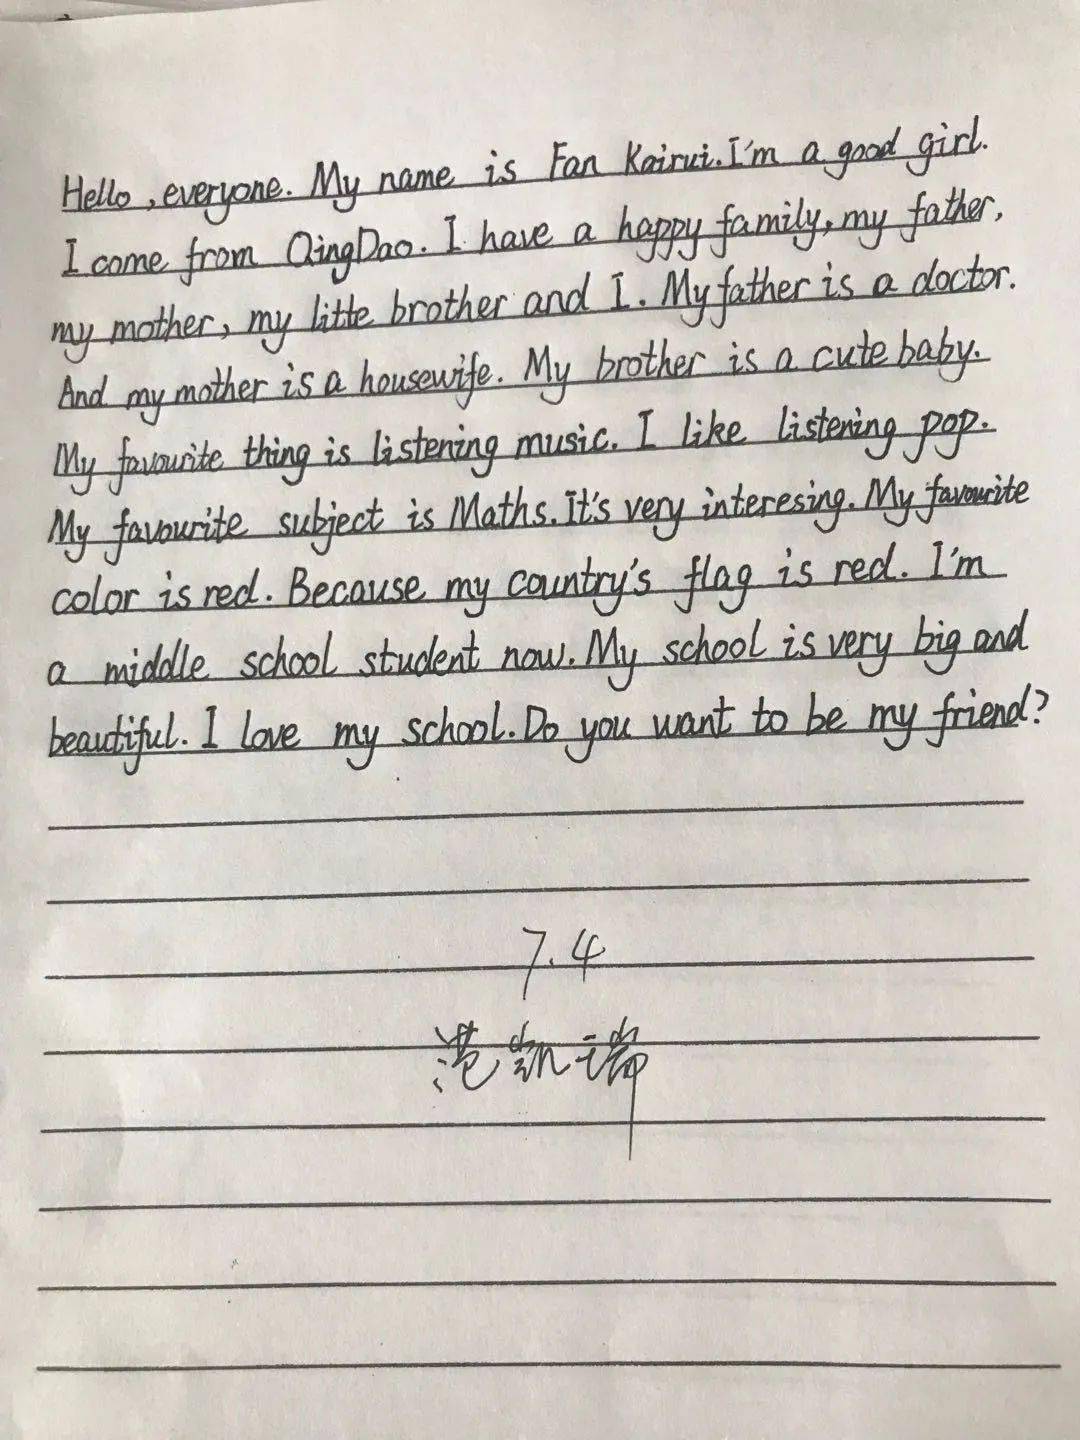 Hello, everyone. My name is Fan Kairui. I'm a good girl.
I come from QingDao. I have a happy family, my father,
my mother, my litte brother and I. My father is a doctor.
And my mother is a housewife. My brother is a cute baby.
My favourite thing is listening music. I like listening pop.
My favourite subject is Maths. It's very interesing. My favourite
color is red. Because my country's flag is red. I'm
a middle school student now. My school is very big and
beautiful. I love my school. Do you want to be my friend?
7.4
范凯瑞